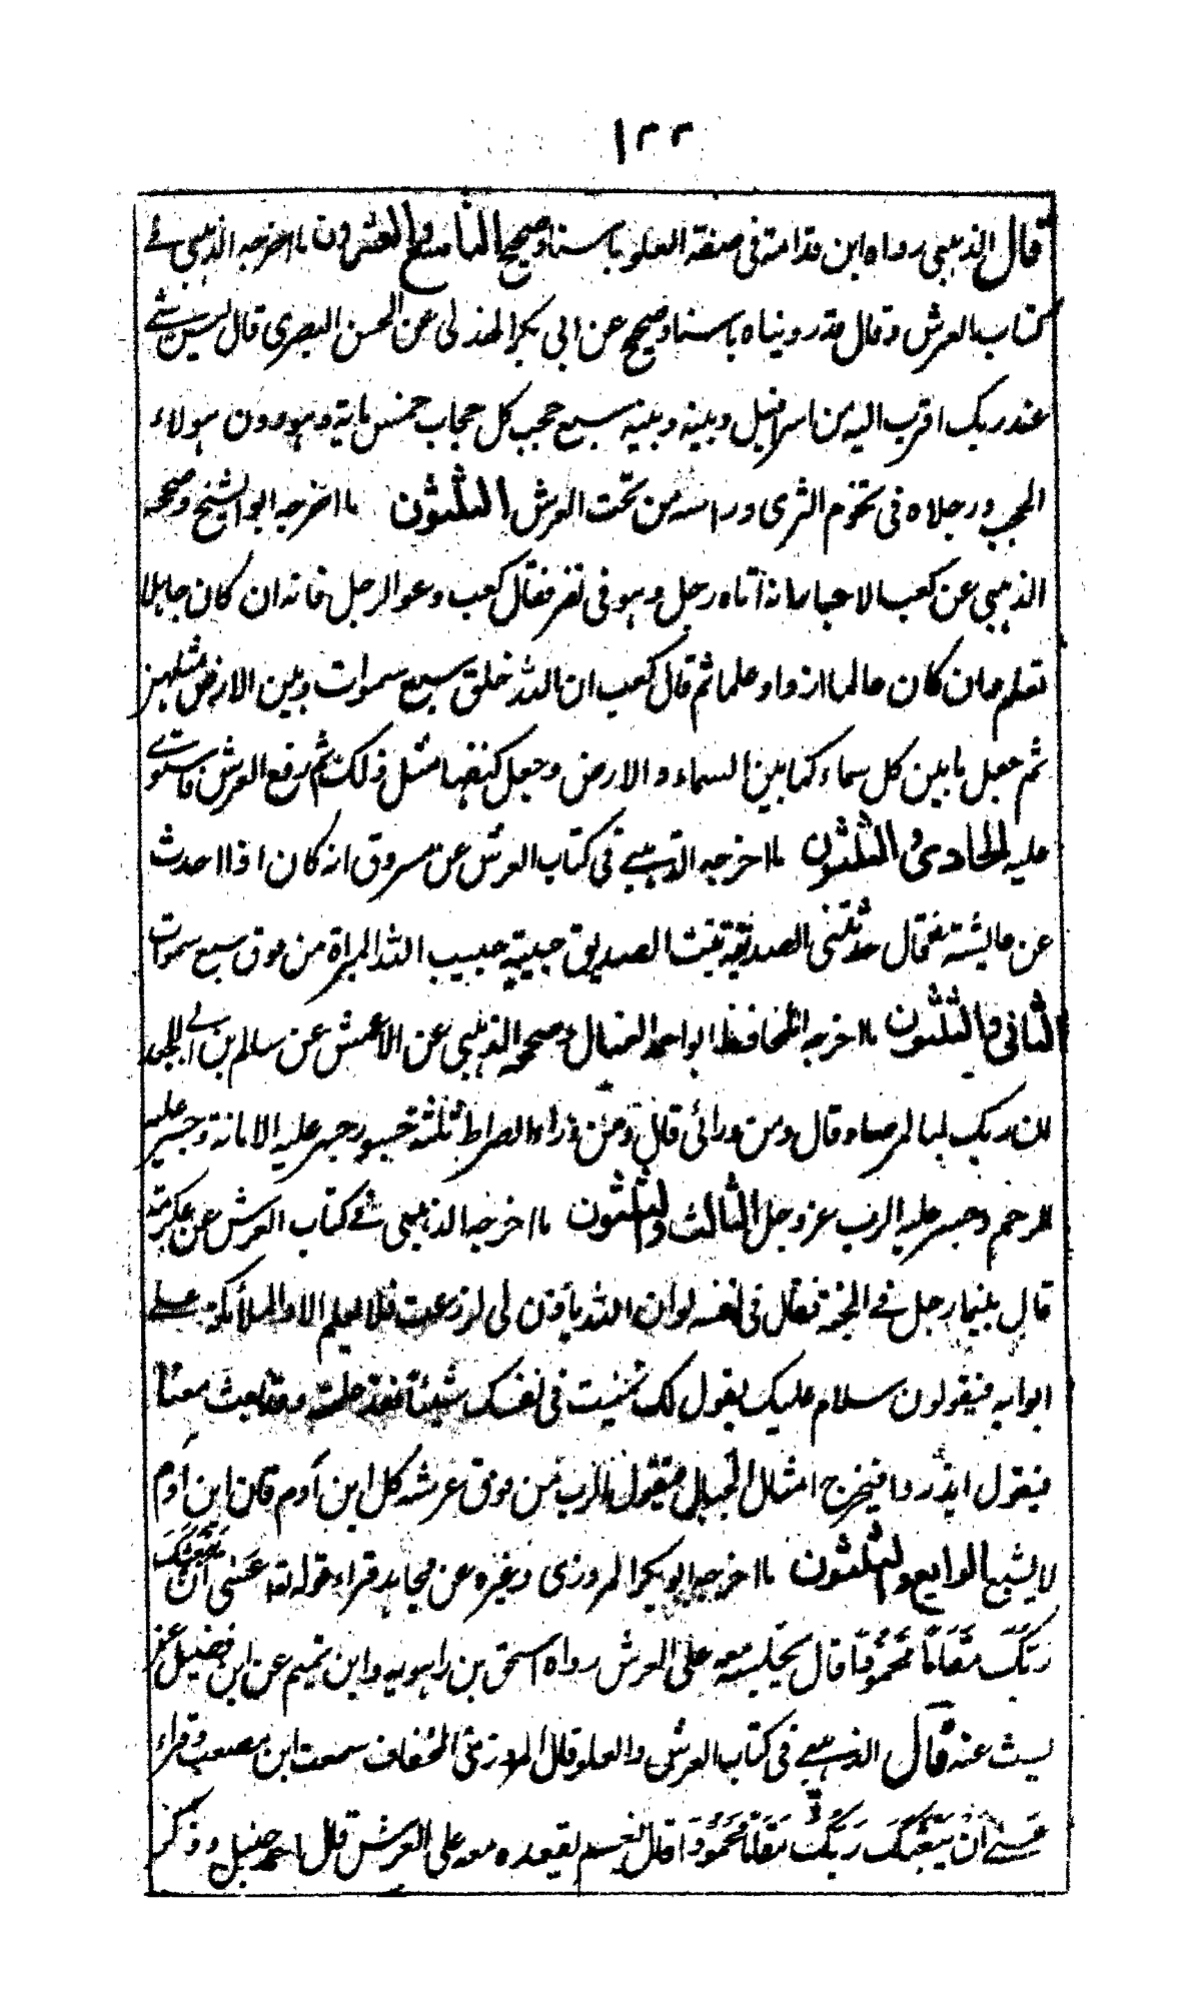 ١٢٢
قال الذهبي رواه ابن قدامة في صفة العلو باسناد صحيح التاسع والعشرون ما اخرجه الذهبي في
كتاب العرش وقال قد روينا ه باسناد صحيح عن ابي بكر الهذلي عن الحسن البصري قال ليس شئ
عند ربك اقرب اليه من اسرافيل وبينه وبينه سبع حجب كل حجاب خمس ماية وهو دون هولاء
الحجب ورجلاه في تخوم الثرى وراسه من تحت العرش الثلثون ما اخرجه ابو الشيخ وصححه
الذهبي عن كعب الاحبار انه اتاه رجل وهو في نفر فقال كعب دعوا لرجل فانه ان كان جاهلا
تعلم وان كان عالما ازداد علما ثم قال كعب ان الله خلق سبع سموات ومن الارض مثلهن
ثم جعل ما بين كل سماء كما بين السماء والارض وجعل كثفها مثل ذلك ثم رفع العرش فاستوى
عليه الحادي والثلثون ما اخرجه الذهبي في كتاب العرش عن مسروق انه كان اذا حدث
عن عايشة فقال حدثتني الصديقة بنت الصديق حبيبة حبيب الله المبراة من فوق سبع سموات
الثاني والثلثون ما اخرجه الحافظ ابو احمد العسال وصححه الذهبي عن الاعمش عن سالم بن ابي الجعد
ان ربك لبالمرصاد قال ومن ورائي قال ومن وراء الصراط ثلثة جسور جسر عليه الامانة وجسر عليه
الرحم وجسر عليه الرب عز وجل الثالث والثلثون ما اخرجه الذهبي في كتاب العرش عن عكرمة
قال بينما رجل في الجنة فقال في نفسه لو ان الله يأذن لي لزرعت فلا يعلم الا والملأئكة على
ابوابه فيقولون سلام عليك يقول لك تمنيت في نفسك شيئا فقد علمته وقد بعث معنا
فيقول ابذر وا فيخرج امثال الجبال فيقول له الرب من فوق عرشه كل ابن آدم فان ابن آدم
لا يشبع الرابع والثلثون ما اخرجه ابو بكر المروزي وغيره عن مجاهد قراء قوله تعا عَسٰى أَنْ يَبْعَثَكَ
رَبُّكَ مَقَامًا مَحْمُودًا قال يجلسه معه على العرش رواه اسحق بن راهويه وابن تميم عن ابن فضيل عن
ليث عنه قال الذهبي في كتاب العرش والعلو قال المروزي الخفاف سمعت ابن مصعب وقراء
عَسٰى أَنْ يَبْعَثَكَ رَبُّكَ مَقَامًا مَحْمُودًا قال نعم يقعده معه على العرش قال احمد حنبل وذكر